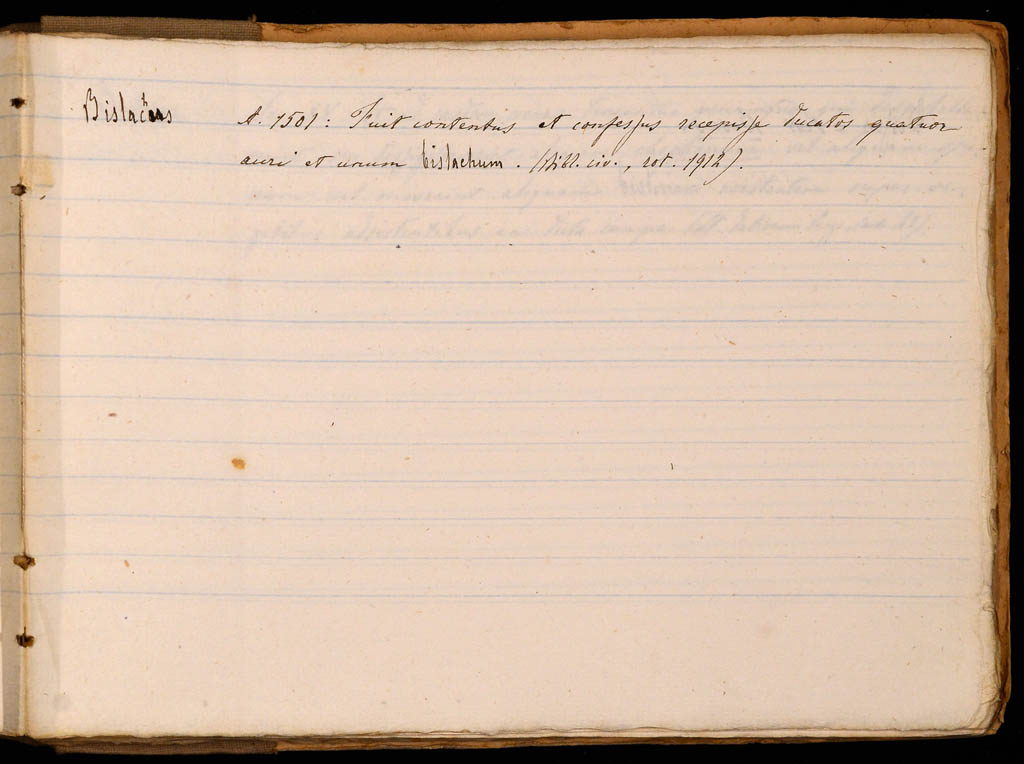 Bislachus
A. 1501 : Fuit contentus et confessus recepisse ducatos quatuor
auri et unum bislachum . (Bibl. civ., rot. 1912).